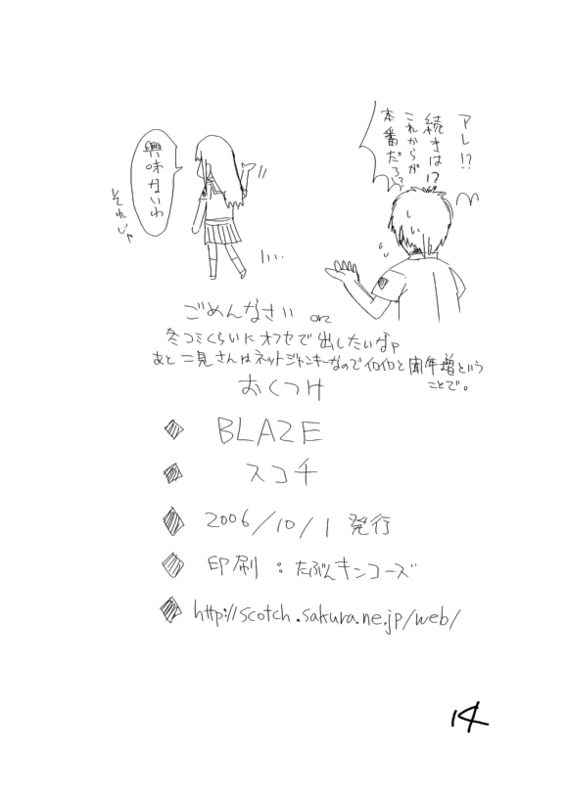 アレ!?
続きは!?
これからが
本番だろ!?
興味ないわ
それじゃ
ごめんなさい orz
冬コミくらいにオフセで出したいなァ
あと二見さんはネットジャンキーなのでイロイロと耳年増という
ことで。
おくつけ
BLAZE
スコチ
2006/10/1 発行
印刷:たぶんキンコーズ
http://scotch.sakura.ne.jp/web/
14